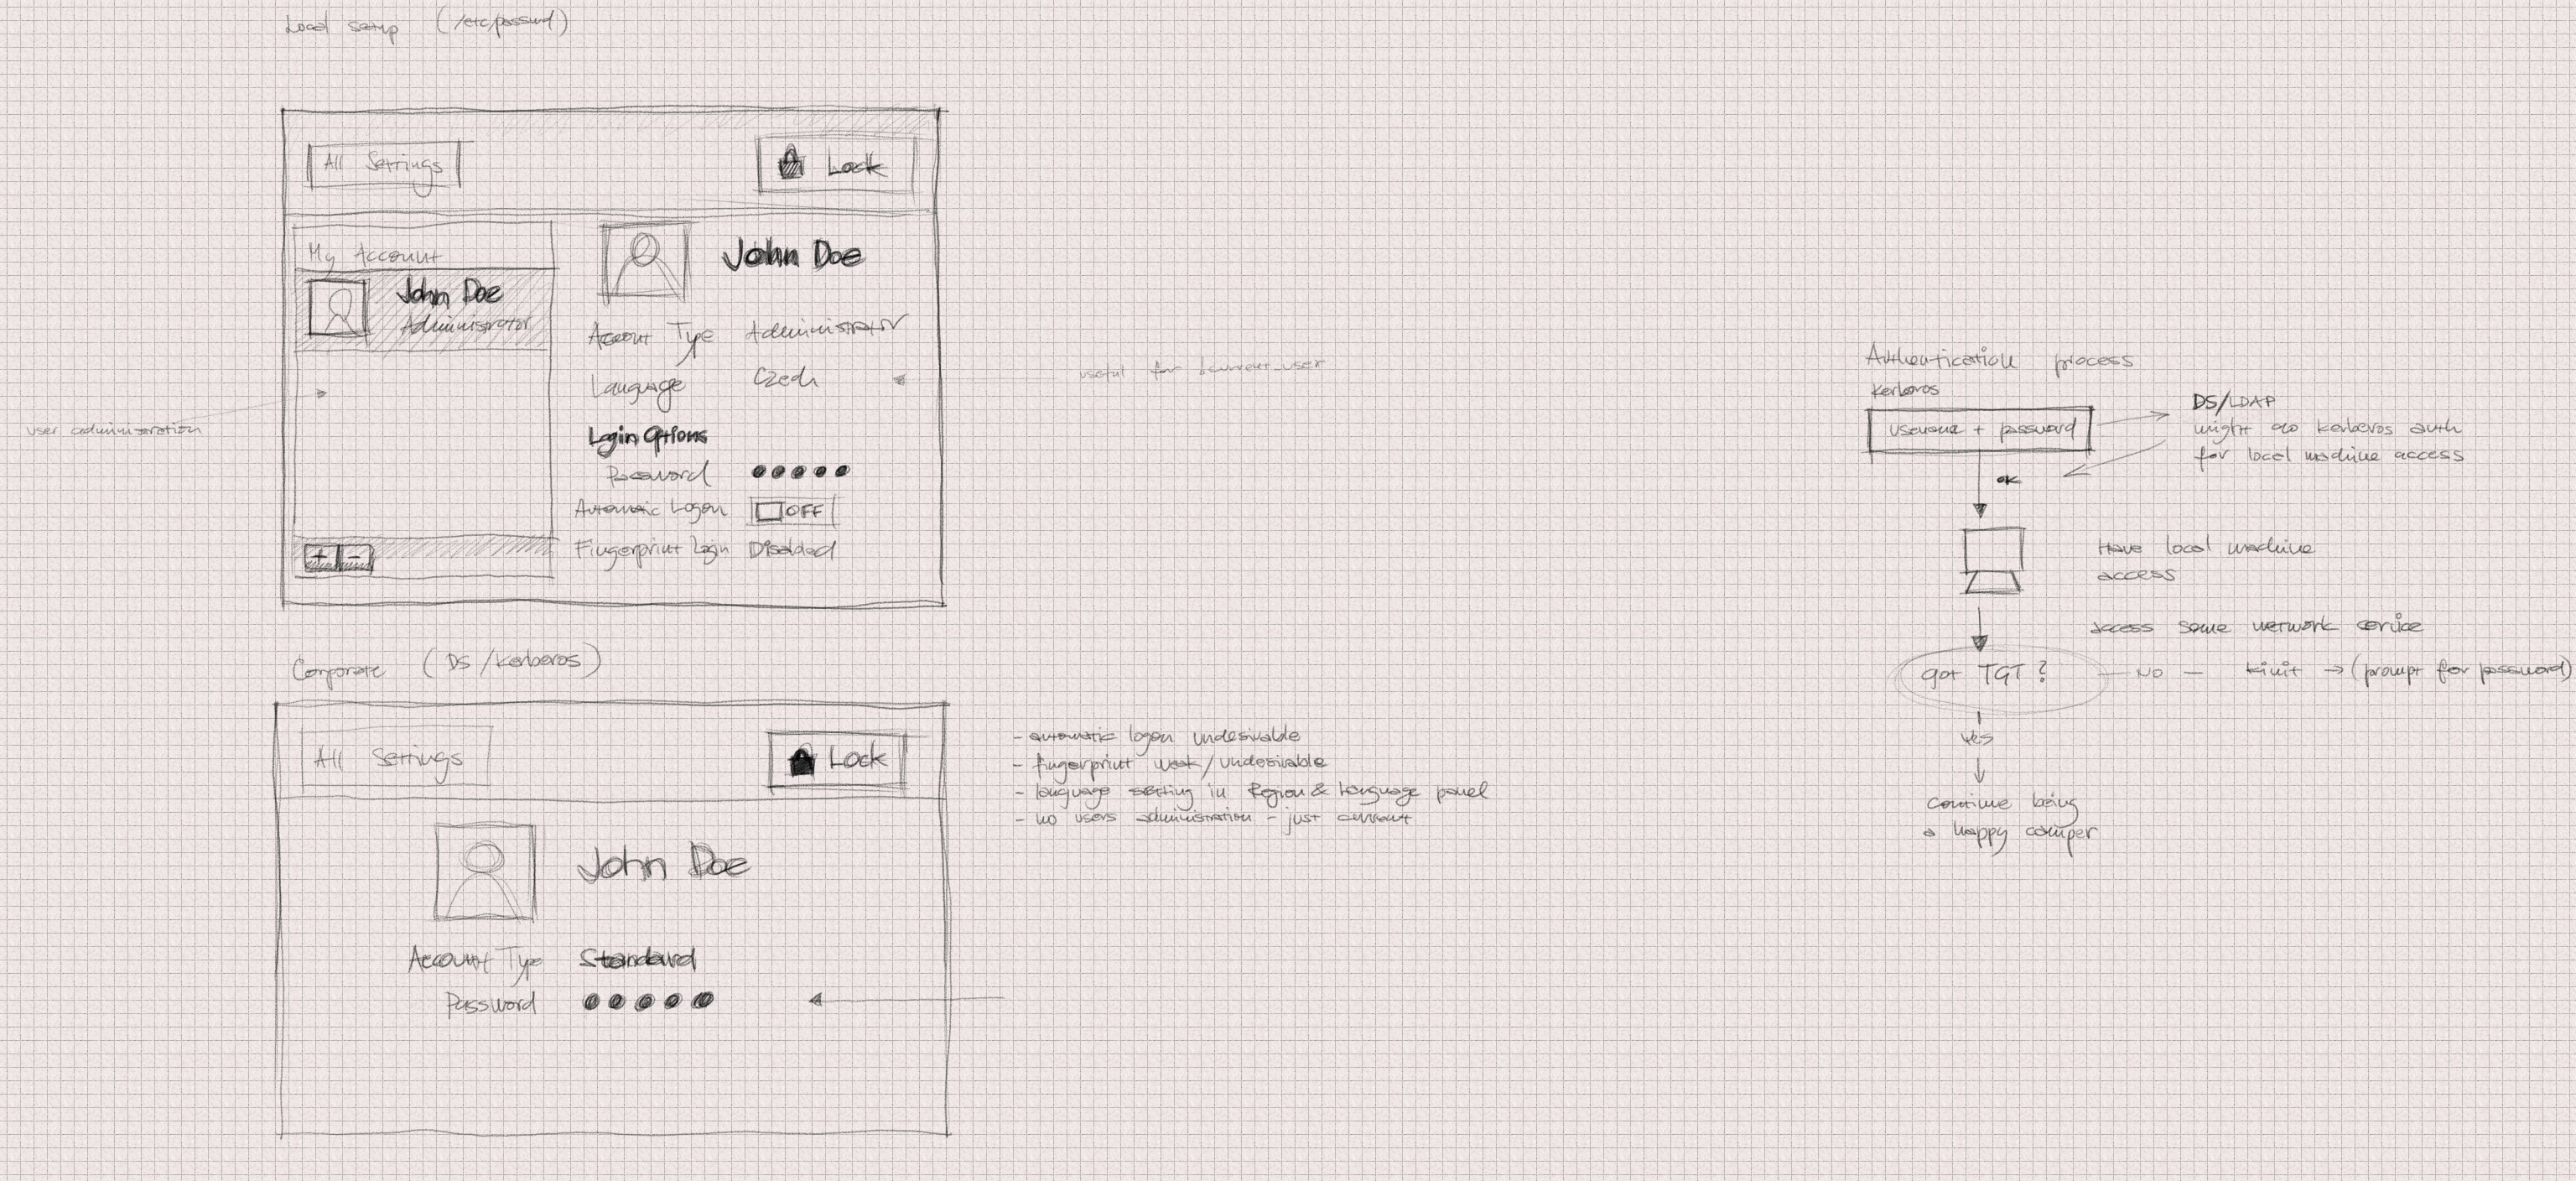 Local setup (/etc/passwd)
All Settings
Lock
My Account
John Doe
Administrator
+ -
John Doe
Account Type Administrator
Language Czech
Login Options
Password
Automatic Logon OFF
Fingerprint Login Disabled
user administration
useful for !current_user
Corporate (DS/Kerberos)
All Settings
Lock
John Doe
Account Type Standard
Password
- automatic logon undesirable
- fingerprint weak/undesirable
- language setting in Region & Language panel
- no users administration - just current
Authentication process
Kerberos
username + password
DS/LDAP
might do kerberos auth
for local machine access
OK
Have local machine
access
access some network service
got TGT?
NO - kinit → (prompt for password)
Yes
Continue being
a happy camper